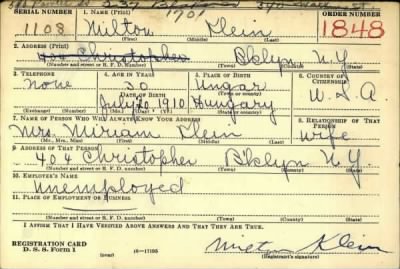 SERIAL NUMBER 1. NAME (Print) ORDER NUMBER
1108 Milton Klein 1848
(First) (Middle) (Last)
2. ADDRESS (Print)
404 Christopher Bklyn N.Y.
(Number and street or R. F. D. number) (Town) (County) (State)
3. TELEPHONE 4. AGE IN YEARS 5. PLACE OF BIRTH 6. COUNTRY OF CITIZENSHIP
none Ungar
DATE OF BIRTH (Town or county)
July 20 1910 Hungary U.S.A
(Exchange) (Number) (Mo.) (Day) (Yr.) (State or country)
7. NAME OF PERSON WHO WILL ALWAYS KNOW YOUR ADDRESS 8. RELATIONSHIP OF THAT PERSON
Mrs. Miriam Klein wife
(Mr., Mrs., Miss) (First) (Middle) (Last)
9. ADDRESS OF THAT PERSON
404 Christopher Bklyn N.Y.
(Number and street or R. F. D. number) (Town) (County) (State)
10. EMPLOYER'S NAME
Unemployed
11. PLACE OF EMPLOYMENT OR BUSINESS
(Number and street or R. F. D. number) (Town) (County) (State)
I AFFIRM THAT I HAVE VERIFIED ABOVE ANSWERS AND THAT THEY ARE TRUE.
REGISTRATION CARD
D. S. S. Form 1 (over) 16—17105 Milton Klein
(Registrant's signature)